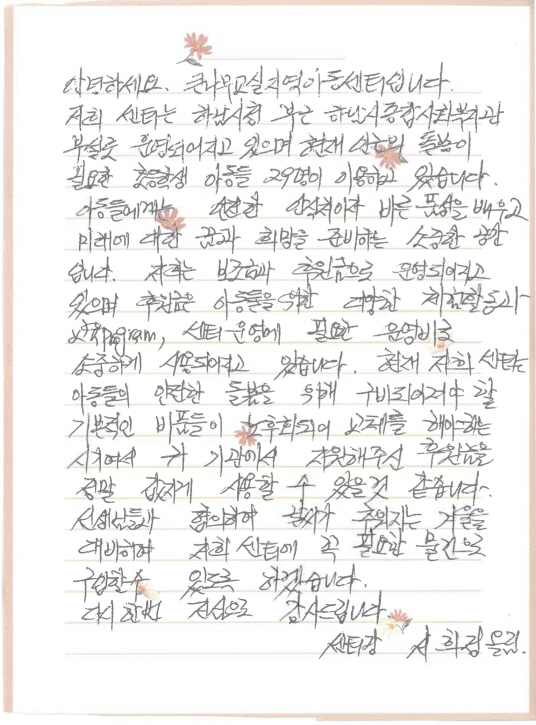 안녕하세요. 큰나무교실지역아동센터입니다.
저희 센터는 하남시청 부근 하남시종합사회복지관
부설로 운영되어지고 있으며 현재 돌봄이
필요한 초등학생 아동들 29명이 이용하고 있습니다.
아동들에게는 안전한 안식처이자 바른 품성을 배우고
미래에 대한 꿈과 희망을 준비하는 소중한 공간
입니다. 저희는 보조금과 후원금으로 운영되어지고
있으며 후원금은 아동들을 위한 다양한 체험활동과
program, 센터운영에 필요한 운영비로
소중하게 사용되어지고 있습니다. 현재 저희 센터는
아동들의 안전한 돌봄을 위해 구비되어져야 할
기본적인 비품들이 노후화되어 교체를 해야하는
시기여서 귀 기관에서 지원해주신 후원금을
정말 값지게 사용할 수 있을것 같습니다.
선생님들과 합의하여 날씨가 추워지는 겨울을
대비하여 저희 센터에 꼭 필요한 물건으로
구입할수 있도록 하겠습니다.
다시 한번 진심으로 감사드립니다
센터장 서 희정 올림.